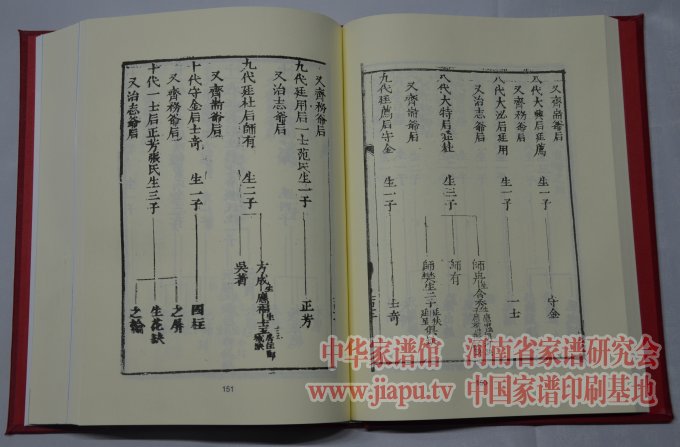 又齊斋爺后
八代大興后廷薦 生一子 守金
又齊務爺后
八代大泓后廷用 生一子 一士
又治志爺后
八代大特后廷枝 生三子
師有
又齊斋爺后
九代廷薦后守金 生一子 士奇
又齊務爺后
九代廷用后一士范氏生一子 正芳
又治志爺后
九代廷枝后師有 生二子
吳著
又齊斋爺后
十代守金后士奇 生一子 國柱
又齊務爺后
十代一士后正芳張氏生三子
之屏
生花缺
之翰
又治志爺后
151
中华家谱馆 河南省家谱研究会
www.jiapu.tv 中国家谱印刷基地